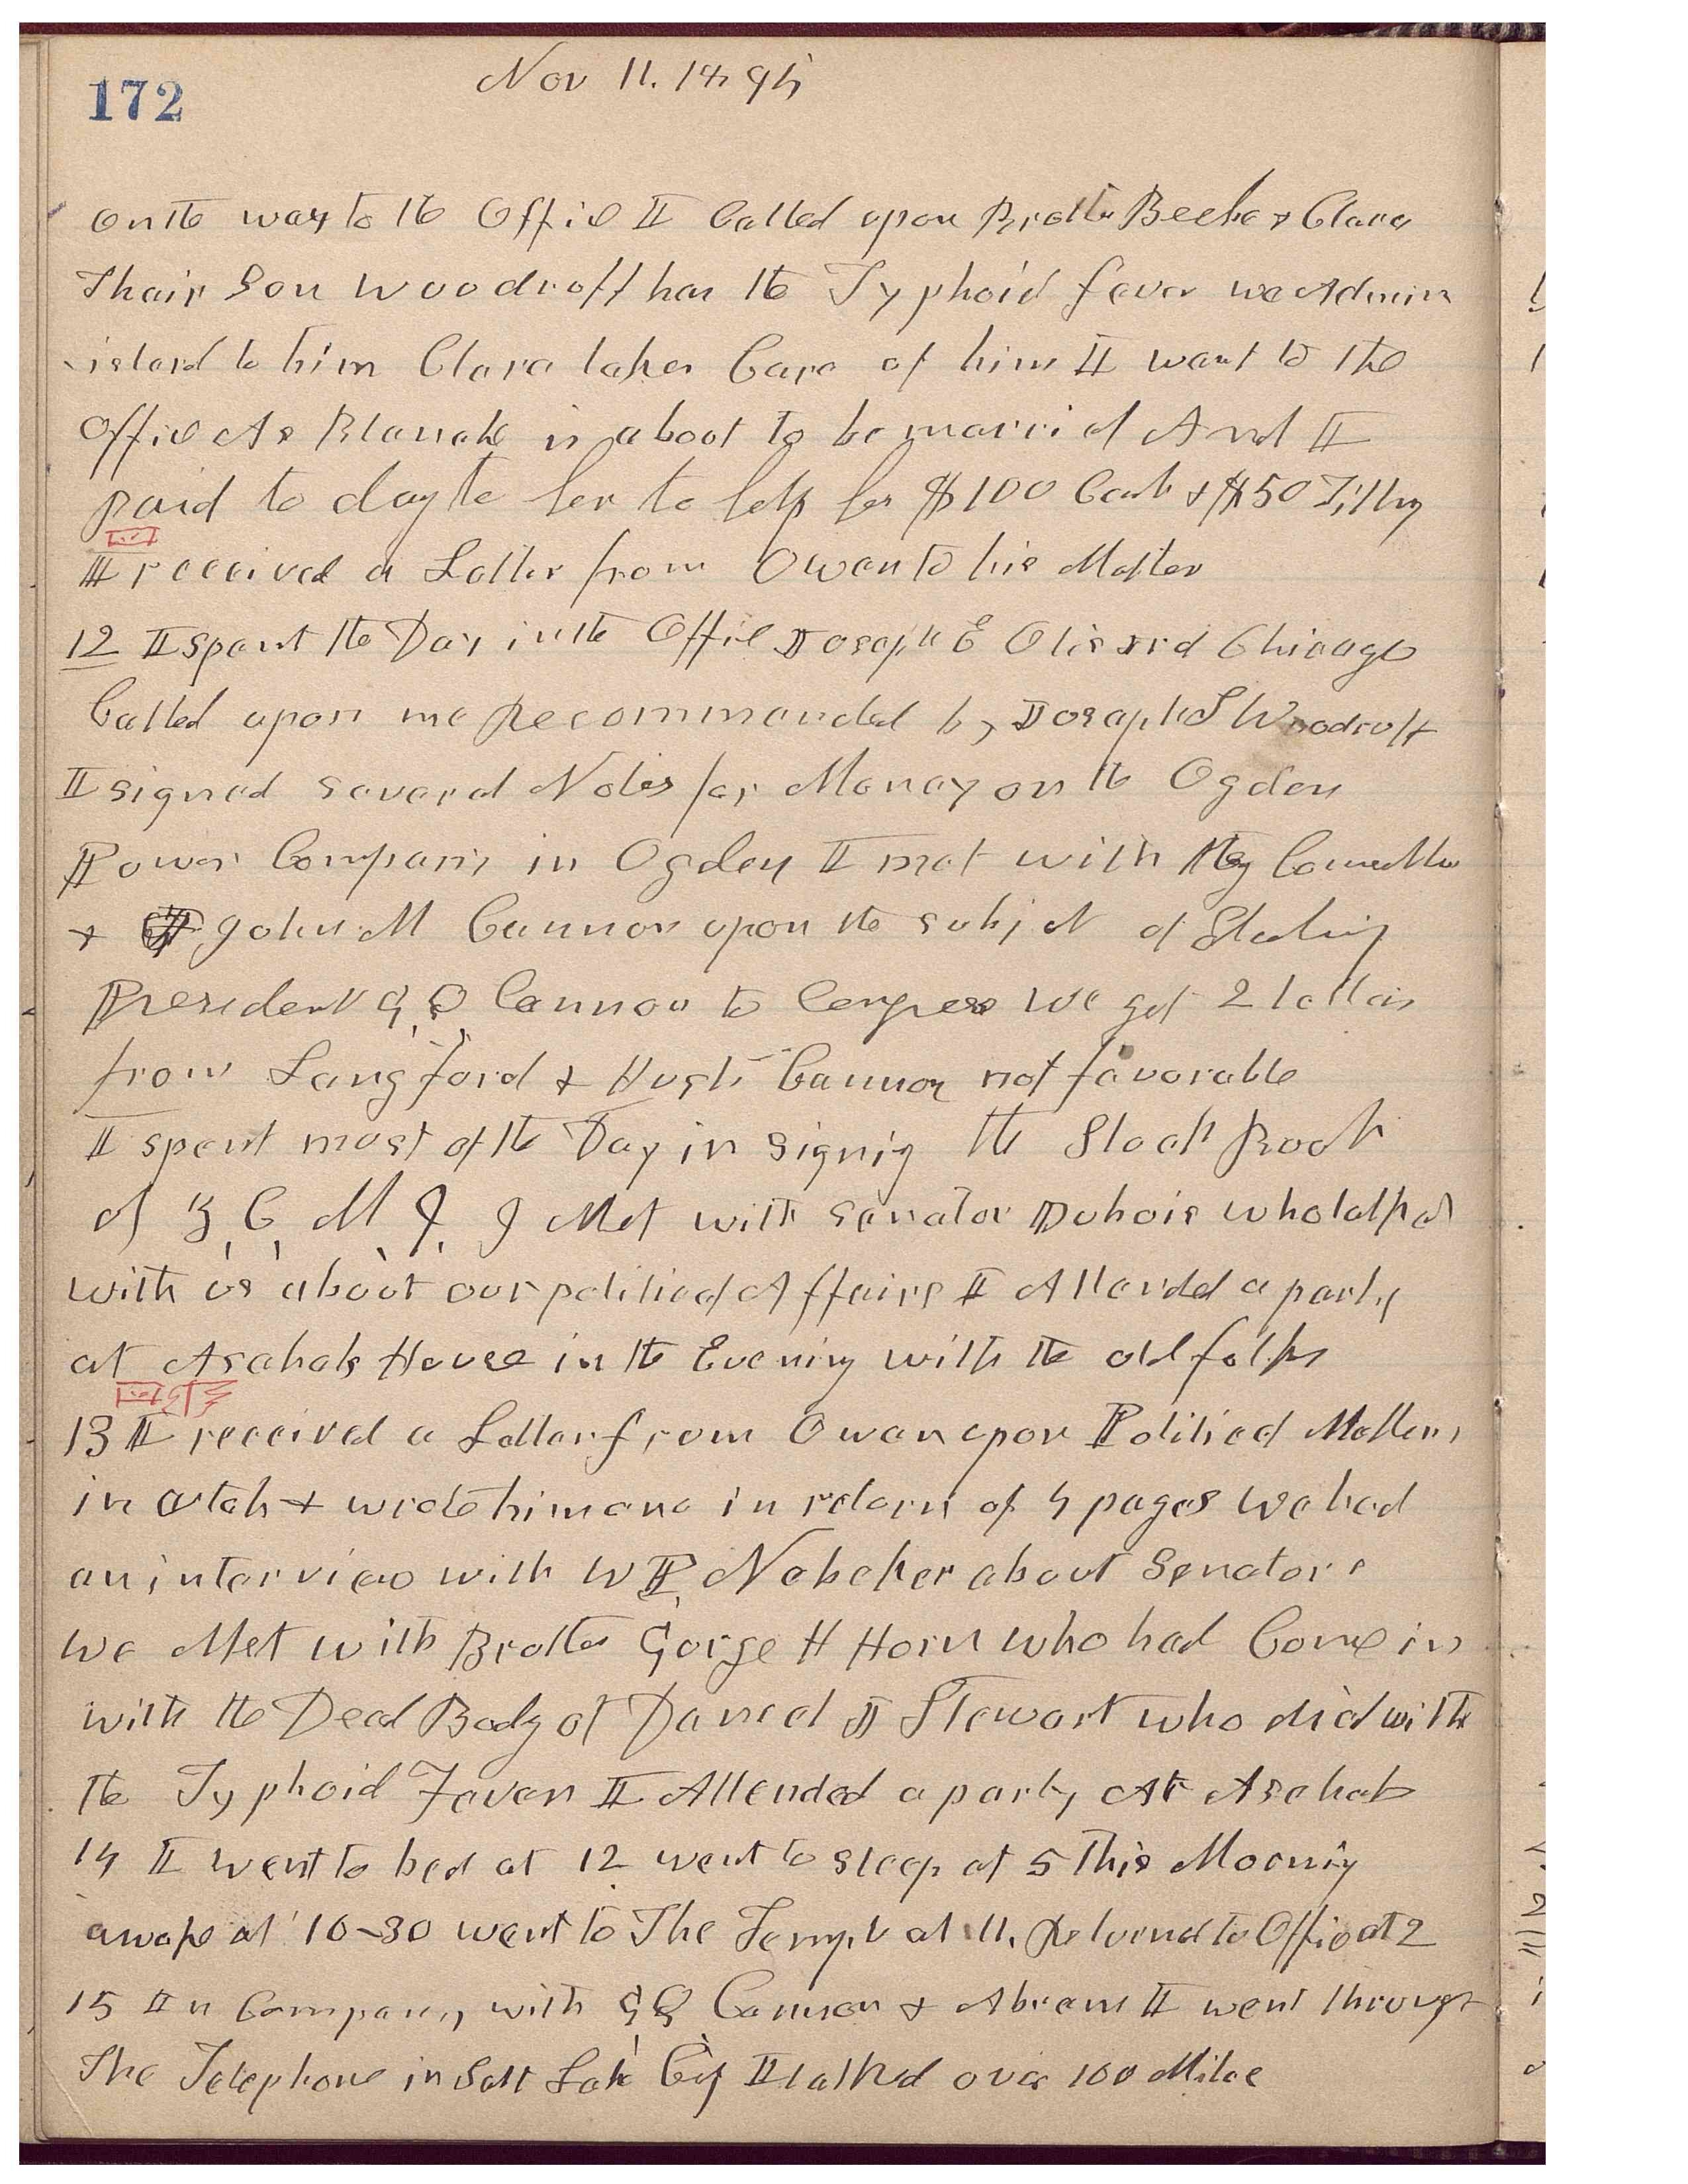 172
Nov 11. 1895
on the way to the Office I Called upon Brother Beebe & Clara
Thair Son Woodruff has the Typhoid fever we Admin
isterd to him Clara takes Care of him I went to the
Office As Blanch is about to be married And I
paid to day to her to help her $100 Cash & $50 Tithing
I received a Letter from Owen to his Mother
12 I spent the Day in the Office Joseph E Chicago
Called upon me Recommended by Joseph S Woodruff
I signed several Notes for Money on the Ogden
Power Company in Ogden I met with My Councillors
& John M Cannon upon the subject of
President G, Q, Cannon to Congress We got 2 letters
from Langford & Hugh Cannon not favorable
I spent most of the Day in signig the Stock Book
of Z, C, M, I, I Met with Senator Dubois who talked
with us about our political Affairs I Attended a party
at Asahels House in the Evening with the old folks
13 I received a Letter from Owen upon Political Matters
in Utah & wrote him one in return of 4 pages We had
an interview with W P, Nebeker about Senators
We Met with Brother Gorge H Horn who had Come in
with the Dead Body of Daniel J Stewart who died with
the Typhoid Fever I Attended a party At Asahels
14 I went to bed at 12 went to sleep at 5 This Morning
awoke at 10-30 went to The Temple at 11, Returned to Office at 2
15 In Company with G, Q, Cannon & Abram I went through
The Telephone in Salt Lake City I talked over 100 Miles